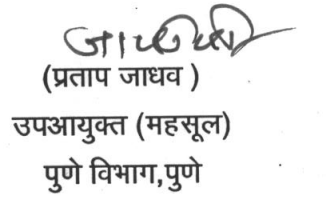 (प्रताप जाधव )
उपआयुक्त (महसूल)
पुणे विभाग,पुणे